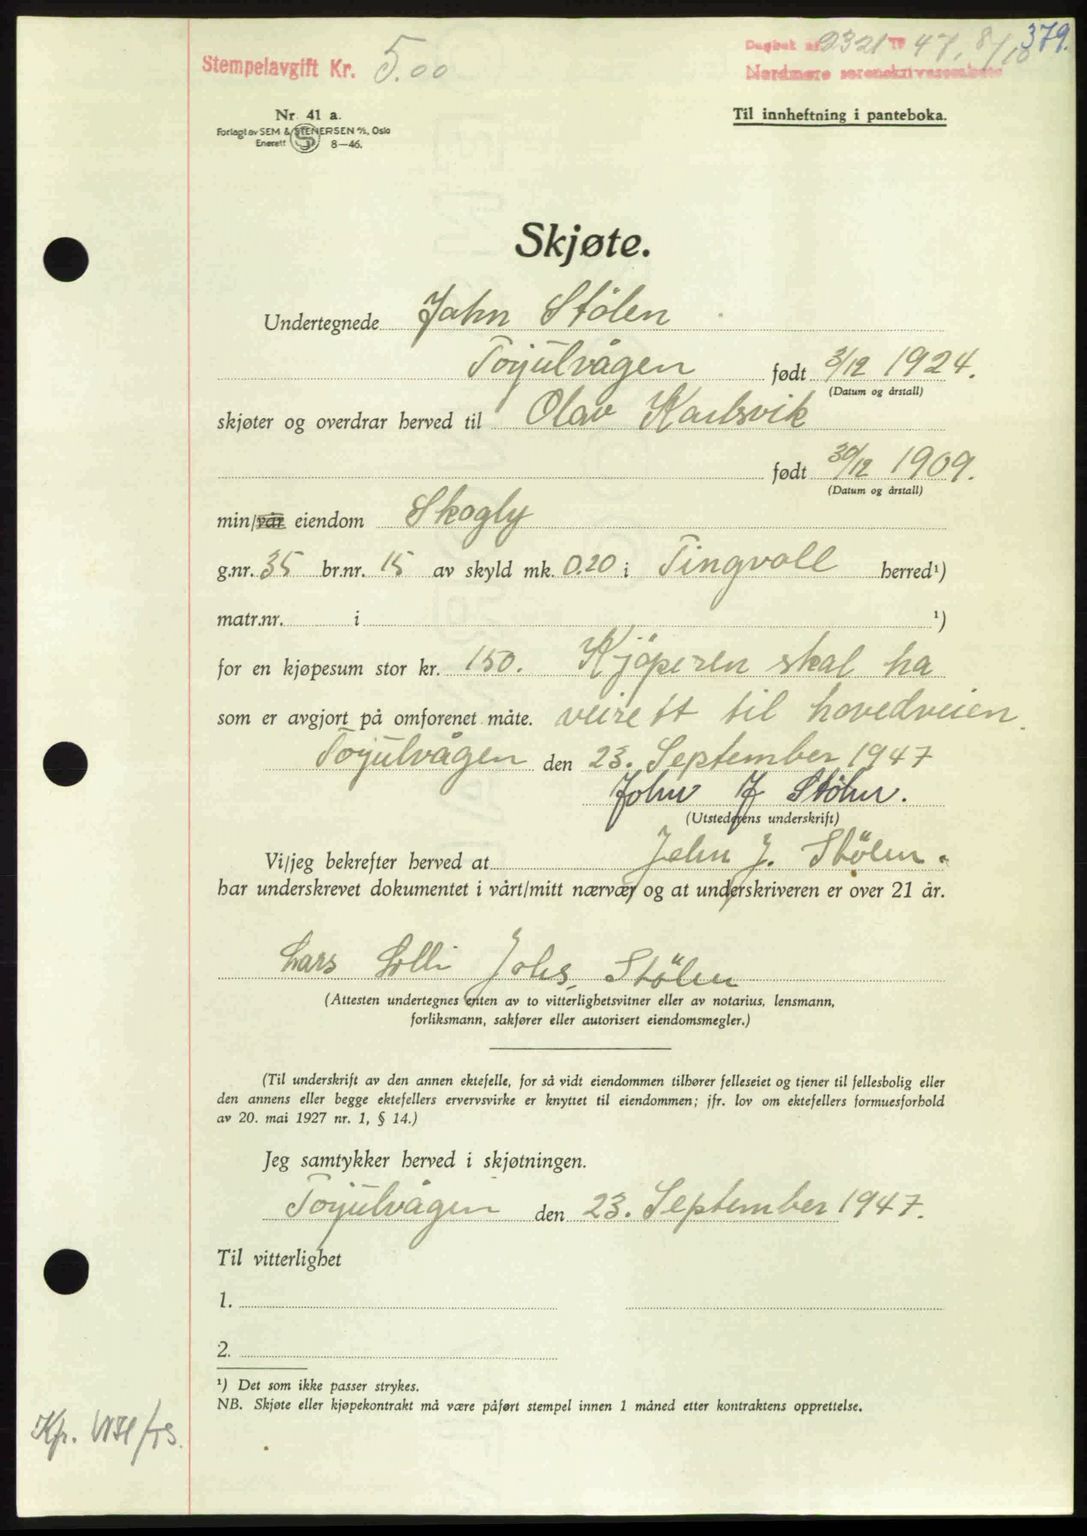 379.
Dagbok nr. 2321 19 47, 8/10
Stempelavgift Kr. 5.00
Nordmøre sorenskriverembete
Nr. 41 a.
Forlagt av SEM & STENERSEN A/S, Oslo
Enerett S 8—46.
Til innheftning i panteboka.
Skjøte.
Undertegnede John Stölen
Torjulvågen født 3/12 1924.
(Datum og årstall)
skjøter og overdrar herved til Olav Karlsvik
født 30/12 1909.
(Datum og årstall)
min/vår eiendom Skogly
g.nr. 35 br.nr. 15 av skyld mk. 0.20 i Tingvoll herred¹)
matr.nr. i ¹)
for en kjøpesum stor kr. 150. Kjöperen skal ha
som er avgjort på omforenet måte. veirett til hovedveien.
Torjulvågen den 23. September 1947
John J Stölen.
(Utstederens underskrift)
Vi/jeg bekrefter herved at John J. Stölen.
har underskrevet dokumentet i vårt/mitt nærvær og at underskriveren er over 21 år.
Lars Lilli Johs, Stölen
(Attesten undertegnes enten av to vitterlighetsvitner eller av notarius, lensmann,
forliksmann, sakfører eller autorisert eiendomsmegler.)
(Til underskrift av den annen ektefelle, for så vidt eiendommen tilhører felleseiet og tjener til fellesbolig eller
den annens eller begge ektefellers ervervsvirke er knyttet til eiendommen; jfr. lov om ektefellers formuesforhold
av 20. mai 1927 nr. 1, § 14.)
Jeg samtykker herved i skjøtningen.
Torjulvågen den 23. September 1947.
Til vitterlighet
1.
2.
¹) Det som ikke passer strykes.
NB. Skjøte eller kjøpekontrakt må være påført stempel innen 1 måned etter kontraktens opprettelse.
Kp.